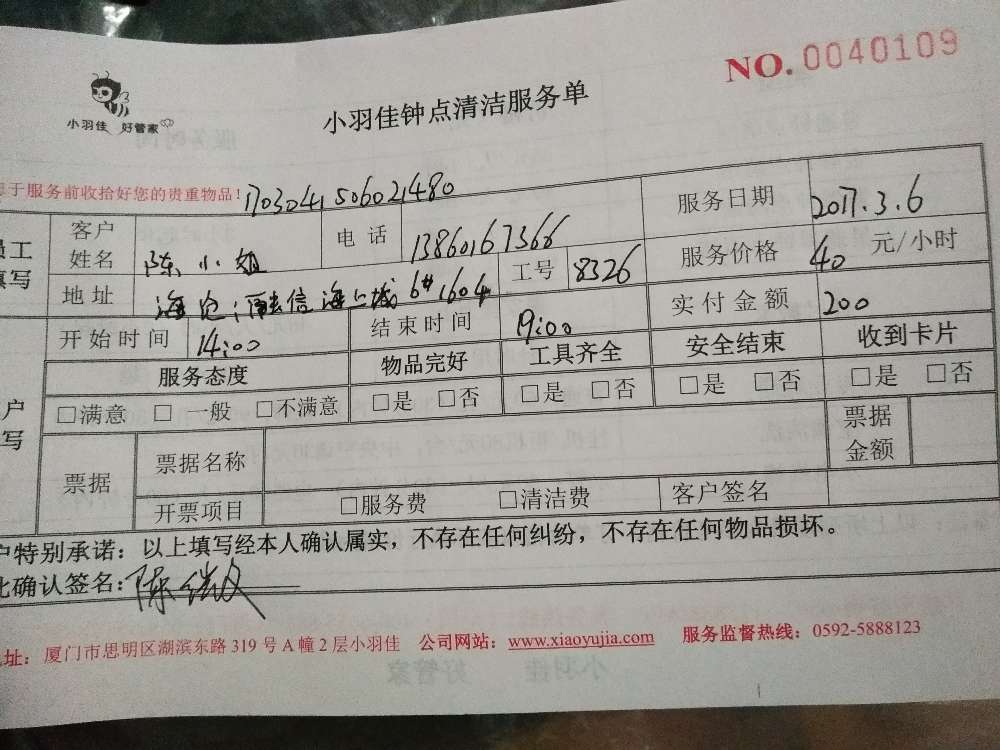 NO. 0040109
小羽佳 好管家
小羽佳钟点清洁服务单
于服务前收拾好您的贵重物品! 1703041506021480
员工填写 客户姓名 陈小姐 电话 13860167366 服务日期 2017.3.6
地址 海沧: 信海上城 6# 1604 工号 8326 服务价格 40 元/小时
开始时间 14:00 结束时间 19:00 实付金额 200
服务态度 物品完好 工具齐全 安全结束 收到卡片
户写 □满意 □一般 □不满意 □是 □否 □是 □否 □是 □否 □是 □否
票据 票据名称 票据金额
开票项目 □服务费 □清洁费 客户签名
户特别承诺：以上填写经本人确认属实，不存在任何纠纷，不存在任何物品损坏。
此确认签名: 陈
址：厦门市思明区湖滨东路 319 号 A 幢 2 层小羽佳 公司网站：www.xiaoyujia.com 服务监督热线：0592-5888123